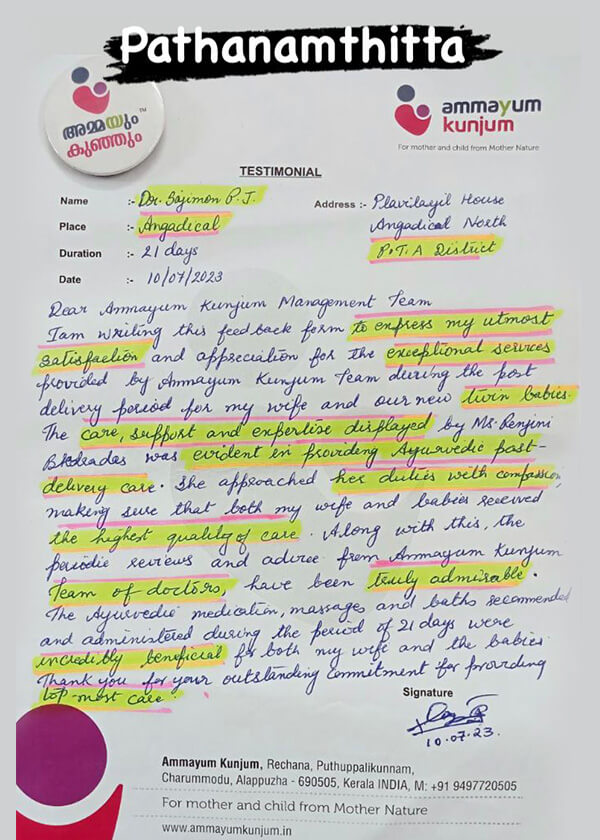 Pathanamthitta
അമ്മയും
കുഞ്ഞും
TM
ammayum
kunjum
For mother and child from Mother Nature
TESTIMONIAL
Name :- Dr. Bajimon P. J.
Address :- Plavilayil House
Place :- Angadical
Angadical North
Duration :- 21 days
P.T.A District
Date :- 10/07/2023
Dear Ammayum Kunjum Management Team
I am writing this feedback form to express my utmost
satisfaction and appreciation for the exceptional services
provided by Ammayum Kunjum Team during the post
delivery period for my wife and our new twin babies.
The care, support and expertise displayed by Ms. Renjini
was evident in providing Ayurvedic post-
delivery care. She approached her duties with compassion,
making sure that both my wife and babies received
the highest quality of care. Along with this, the
periodic reviews and advice from Ammayum Kunjum
Team of doctors, have been truly admirable.
The Ayurvedic medication, massages and baths recommended
and administered during the period of 21 days were
incredibly beneficial for both my wife and the babies
Thank you for your outstanding commitment for providing
top-most care.
Signature
10.07.23.
Ammayum Kunjum, Rechana, Puthuppalikunnam,
Charummodu, Alappuzha - 690505, Kerala INDIA, M: +91 9497720505
For mother and child from Mother Nature
www.ammayumkunjum.in